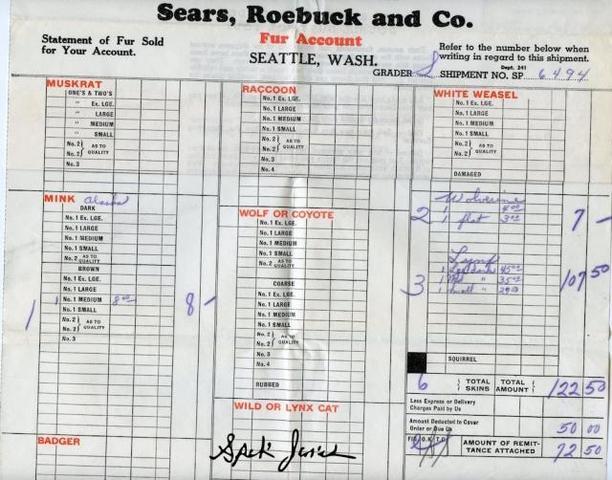 Sears, Roebuck and Co.
Statement of Fur Sold
for Your Account.
Fur Account
SEATTLE, WASH.
Refer to the number below when
writing in regard to this shipment.
Dept. 241
GRADER
SHIPMENT NO. SP. 6494
MUSKRAT
ONE'S & TWO'S
" Ex. LGE.
" LARGE
" MEDIUM
" SMALL
No. 2 } AS TO
No. 2 } QUALITY
No. 3
MINK Alaska
DARK
No. 1 Ex. LGE.
No. 1 LARGE
No. 1 MEDIUM
No. 1 SMALL
No. 2 AS TO QUALITY
BROWN
No. 1 Ex. LGE.
No. 1 LARGE
1 1 No. 1 MEDIUM 8.00 8 -
No. 1 SMALL
No. 2 } AS TO
No. 2 } QUALITY
No. 3
BADGER
RACCOON
No. 1 Ex. LGE.
No. 1 LARGE
No. 1 MEDIUM
No. 1 SMALL
No. 2 } AS TO
No. 2 } QUALITY
No. 3
No. 4
WOLF OR COYOTE
No. 1 Ex. LGE.
No. 1 LARGE
No. 1 MEDIUM
No. 1 SMALL
No. 2 AS TO QUALITY
COARSE
No. 1 Ex. LGE.
No. 1 LARGE
No. 1 MEDIUM
No. 1 SMALL
No. 2 } AS TO
No. 2 } QUALITY
No. 3
No. 4
RUBBED
WILD OR LYNX CAT
WHITE WEASEL
No. 1 Ex. LGE.
No. 1 LARGE
No. 1 MEDIUM
No. 1 SMALL
No. 2 } AS TO
No. 2 } QUALITY
DAMAGED
Wolverine
2 1 4.00
1 flat 3.00 7 -
Lynx
3 1 45.00 107 50
1 " 35.00
1 small "
SQUIRREL
6 TOTAL SKINS TOTAL AMOUNT 122 50
Less Express or Delivery
Charges Paid by Us
Amount Deducted to Cover
Order or Due Us 50 00
AMOUNT OF REMIT-
TANCE ATTACHED 72 50